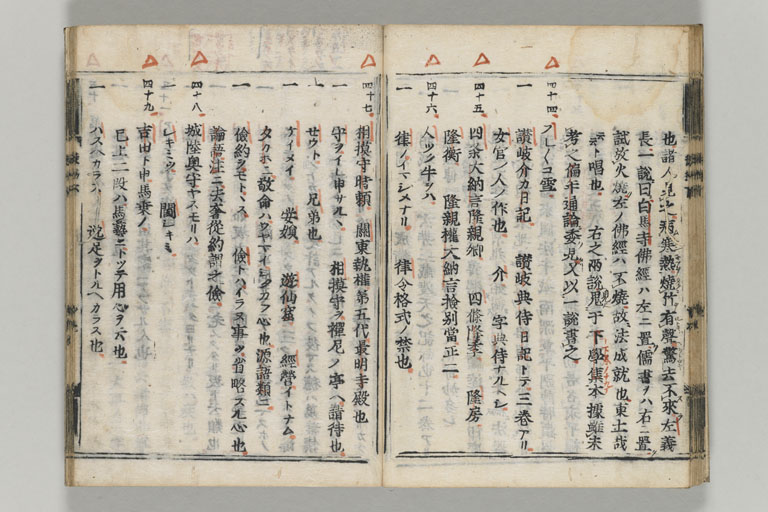 也諸人 寒熱燒竹有聲驚去不來左義
長一説曰白馬寺佛經ハ左ニ置儒書ヲハ右ニ置
試放火燒左ノ佛經ハ不燒故ニ法成就也東土哉
ト唱也 右之兩説見于下學集本據雖未
考之備年通論委見又以一説書之
四十四
一 フレ〳〵コ雪
讃岐介カ日記 讃岐典侍日記トテ三卷アリ
女官ノ人ノ作也 介 字典侍ナルヘシ
四十五
四条大納言隆親卿 四條隆季 隆房
隆衡 隆親權大納言檢別當正二
四十六
人ツノ牛ツハ
一 律ノイマシメナリ 律令格式ノ禁也
四十七
相摸守時頼 關東執權第五代最明寺殿也
一 守ヲイレ申サルヽ 相摸守ヲ禪尼ノ亭ヘ請待也
一 せウト 兄弟也
一 ケイメイ 安嫏 遊仙窟 經營イトナム
敬命ハウヤマイ 心也源語類ニ
一 儉約ヲモトヽス 儉トハイラヌ事ヲ省略スル心也
論語注ニ 從約謂之儉
四十八
城陸奥守ヤスモリハ
一 レキミヲ 閫レキミ
四十九
吉田ト申馬乗ノ
已上二段ハ馬藝ニトツテ用心ヲ云也
一 ハスヘカラス 足タトルヘカラス也